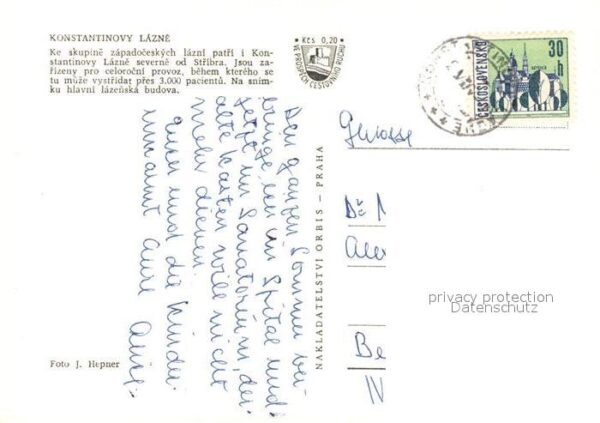 KONSTANTINOVY LÁZNĚ
Ke skupině západočeských lázní patří i Kon-
stantinovy Lázně severně od Stříbra. Jsou za-
řízeny pro celoroční provoz, během kterého se
tu může vystřídat přes 3.000 pacientů. Na sním-
ku hlavní lázeňská budova.
Kčs 0,20
VE PROSPĚCH CESTOVNÍHO RUCHU
30
h
ČESKOSLOVENSKO
Den ganzen Sommer ver-
bringe ich im Spital und
jetzt im Sanatorium, der
alte Kasten will nicht
mehr dienen.
und die Kinder
umarmt
NAKLADATELSTVÍ ORBIS — PRAHA
Genosse
Dč 1
Be
IV
privacy protection
Datenschutz
Foto J. Hepner